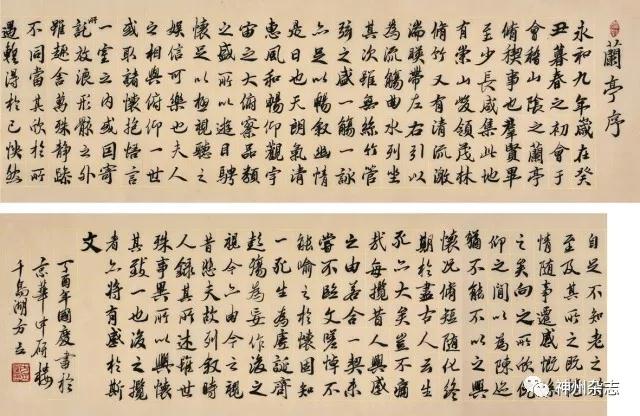 蘭亭序
永和九年歲在癸
丑暮春之初會于
會稽山陰之蘭亭
脩稧事也羣賢畢
至少長咸集此地
有崇山峻領茂林
脩竹又有清流激
湍暎帶左右引以
為流觴曲水列坐
其次雖無絲竹管
弦之盛一觴一詠
亦足以暢叙幽情
是日也天朗氣清
惠風和暢仰觀宇
宙之大俯察品類
之盛所以遊目騁
懷足以極視聽之
娛信可樂也夫人
之相與俯仰一世
或取諸懷抱悟言
一室之內或因寄
所託放浪形骸之外
雖趣舍萬殊靜躁
不同當其欣於所
遇蹔得於己快然
自足不知老之將
至及其所之既惓
情隨事遷感慨係
之矣向之所欣俛
仰之間以為陳迹
猶不能不以之興
懷況脩短隨化終
期於盡古人云死
生亦大矣豈不痛
哉每攬昔人興感
之由若合一契未
嘗不臨文嗟悼不
能喻之於懷固知
一死生為虛誕齊
彭殤為妄作後之
視今亦由今之視
昔悲夫故列叙時
人録其所述雖世
殊事異所以興懷
其致一也後之攬
者亦將有感於斯
文
丁酉年國慶書於
京華中研樓
千島湖方立
神州杂志